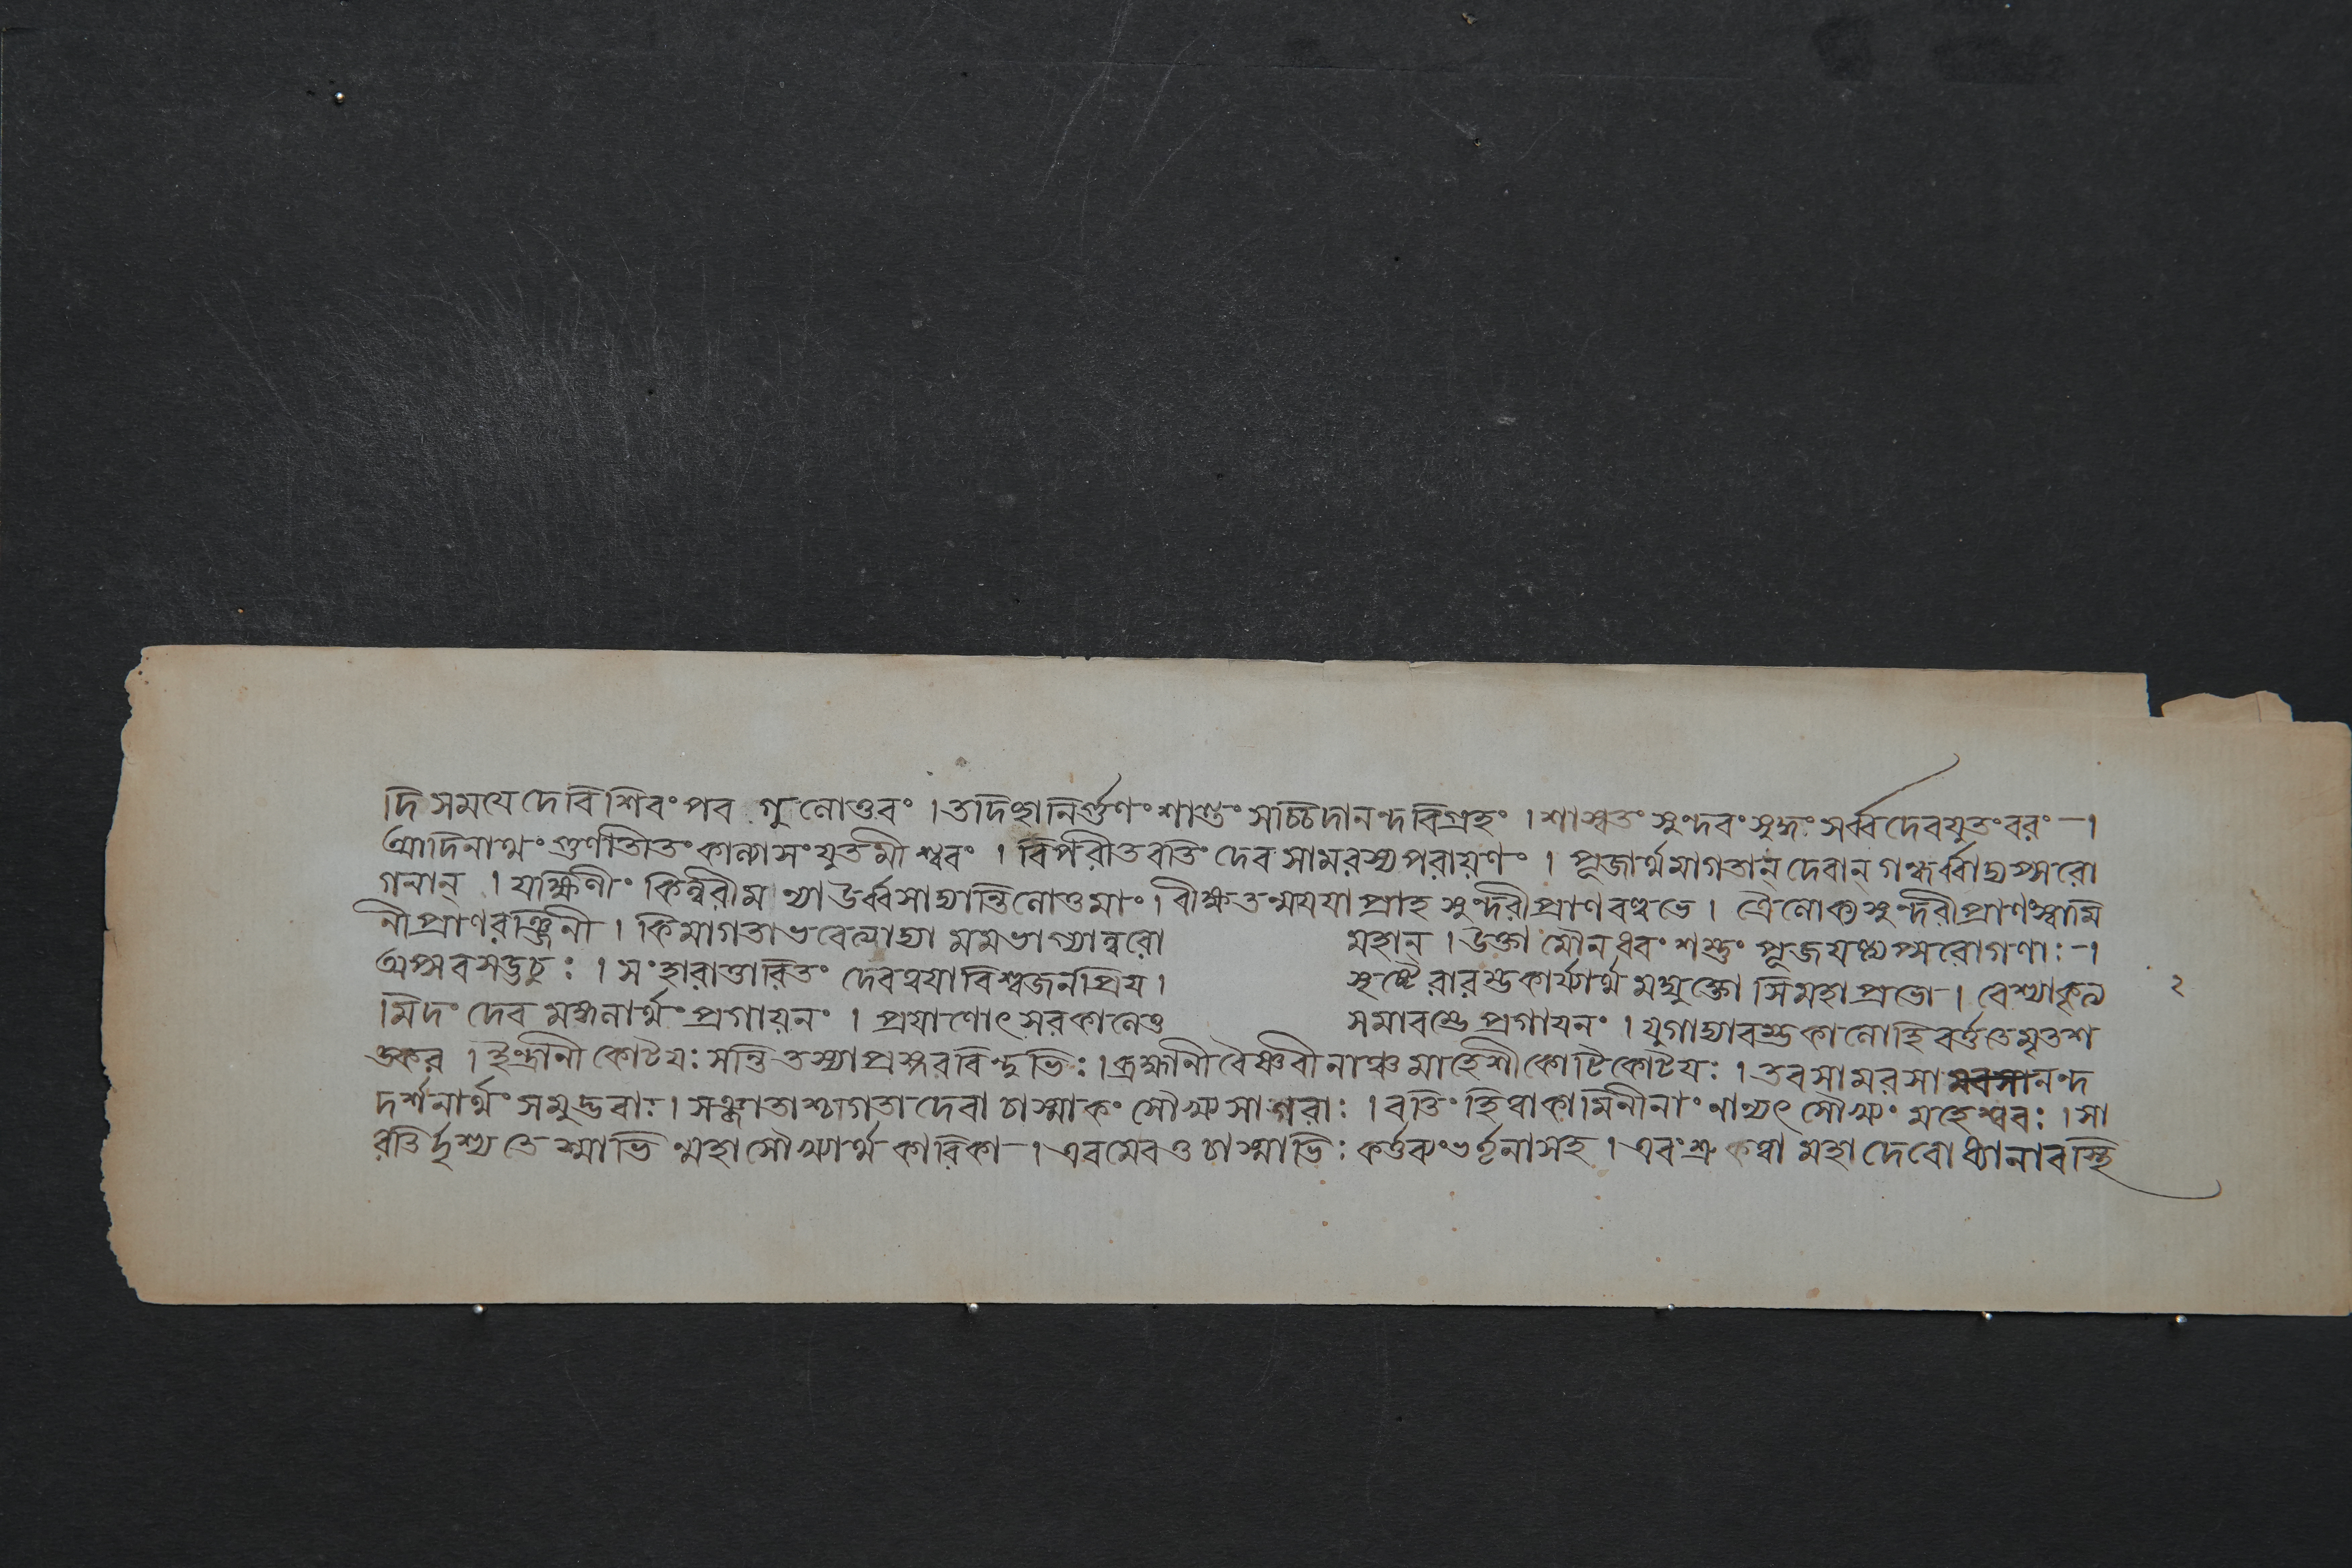 দি সমযে দেবি শিবং পব গুনোত্তবং । তদিংহা নির্গুণং শান্তং সচ্চিদানন্দবিগ্রহং । শাস্বতং সুন্দবং সুদ্ধং সর্ব্বদেবযুতং বরং -।
আদিনাথং গুণাতীতং কান্তাসংযুতমীশ্ববং । বিপরীতবতিং দেব সামরস্যপরায়ণং । পূজার্থমাগতান্ দেবান্ গন্ধর্ব্বাদ্যপ্সরো
গনান্ । যক্ষিণীং কিন্নরীম থ্যা উর্ব্বসাদ্যান্তিলোত্তমাং । বীক্ষ তন্ময়যা প্রাহ সুন্দরী প্রাণবল্লভে । ত্রৈলোক্যসুন্দরী প্রাণস্বামি
নী প্রাণরঞ্জিনী । কিমাগতা ভবেত্যাদ্যা মমভাগ্যান্বরো মহান্ । উক্তা মৌনধবং শম্ভুং পূজযন্ত্যপ্সরোগণাঃ -।
অপ্সবসউচুঃ । সংহারাত্তারিতং দেব ত্বযা বিশ্বজনপ্রিয । সৃষ্টেরারম্ভকার্য্যার্থমদ্যুক্তো সি মহাপ্রভো । বেশ্যাকৃত্য ২
মিদং দেব মঙ্গলার্থং প্রগায়নং । প্রযাণোৎসবকালেও সমাবম্ভে প্রগাযনং । যুগাদ্যাবম্ভকালো হি বর্ত্ততে মৃতশ
ঙ্কর । ইন্দ্রানী কোটযঃ সন্তি তস্যা প্রস্করবিন্দুভিঃ । ব্রহ্মানী বৈষ্ণবীনাঞ্চ মাহেশী কোটিকোটযঃ । তব সামরসানন্দ
দর্শনার্থং সমুদ্ভবাঃ । সঞ্জাতাশ্চাগতা দেবা চাস্মাকং সৌখ্যসাগরাঃ । বতিং হিত্বা কামিনীনাং নান্যৎ সৌখ্যং মহেশ্ববঃ । সা
রতির্দৃশ্যতেস্মাভির্ম্মহাসৌখ্যার্থকারিকা -। এবমেবও চাস্মাভিঃ কর্ত্তব্যং ভর্তৃনা সহ । এবং শ্রুকত্বা মহাদেবো ধ্যানাবস্থি